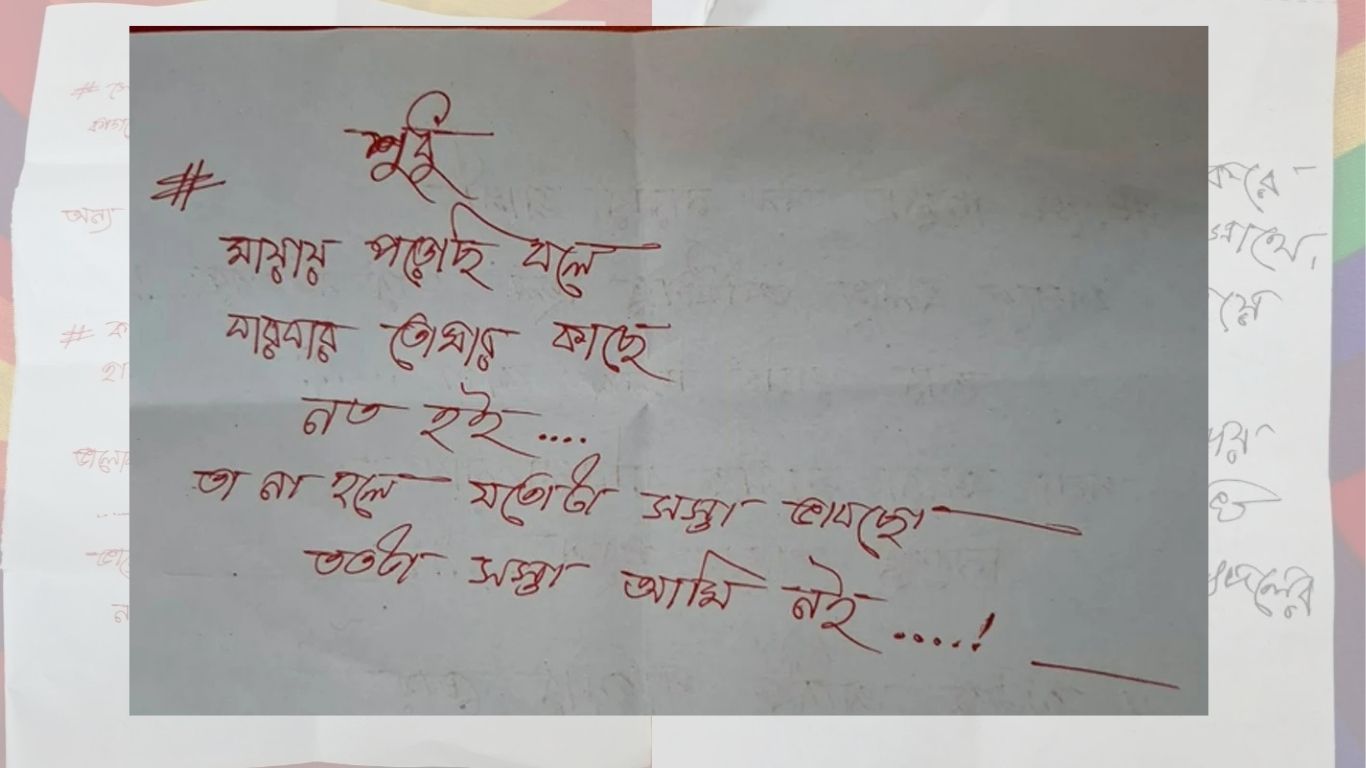 শুধু
#
মায়ায় পড়েছি বলে
বারবার তোমার কাছে
নত হই ....
তা না হলে যতোটা সস্তা ভাবছো —
ততটা সস্তা আমি নই .....! —
অন্য
করে
সাথে,